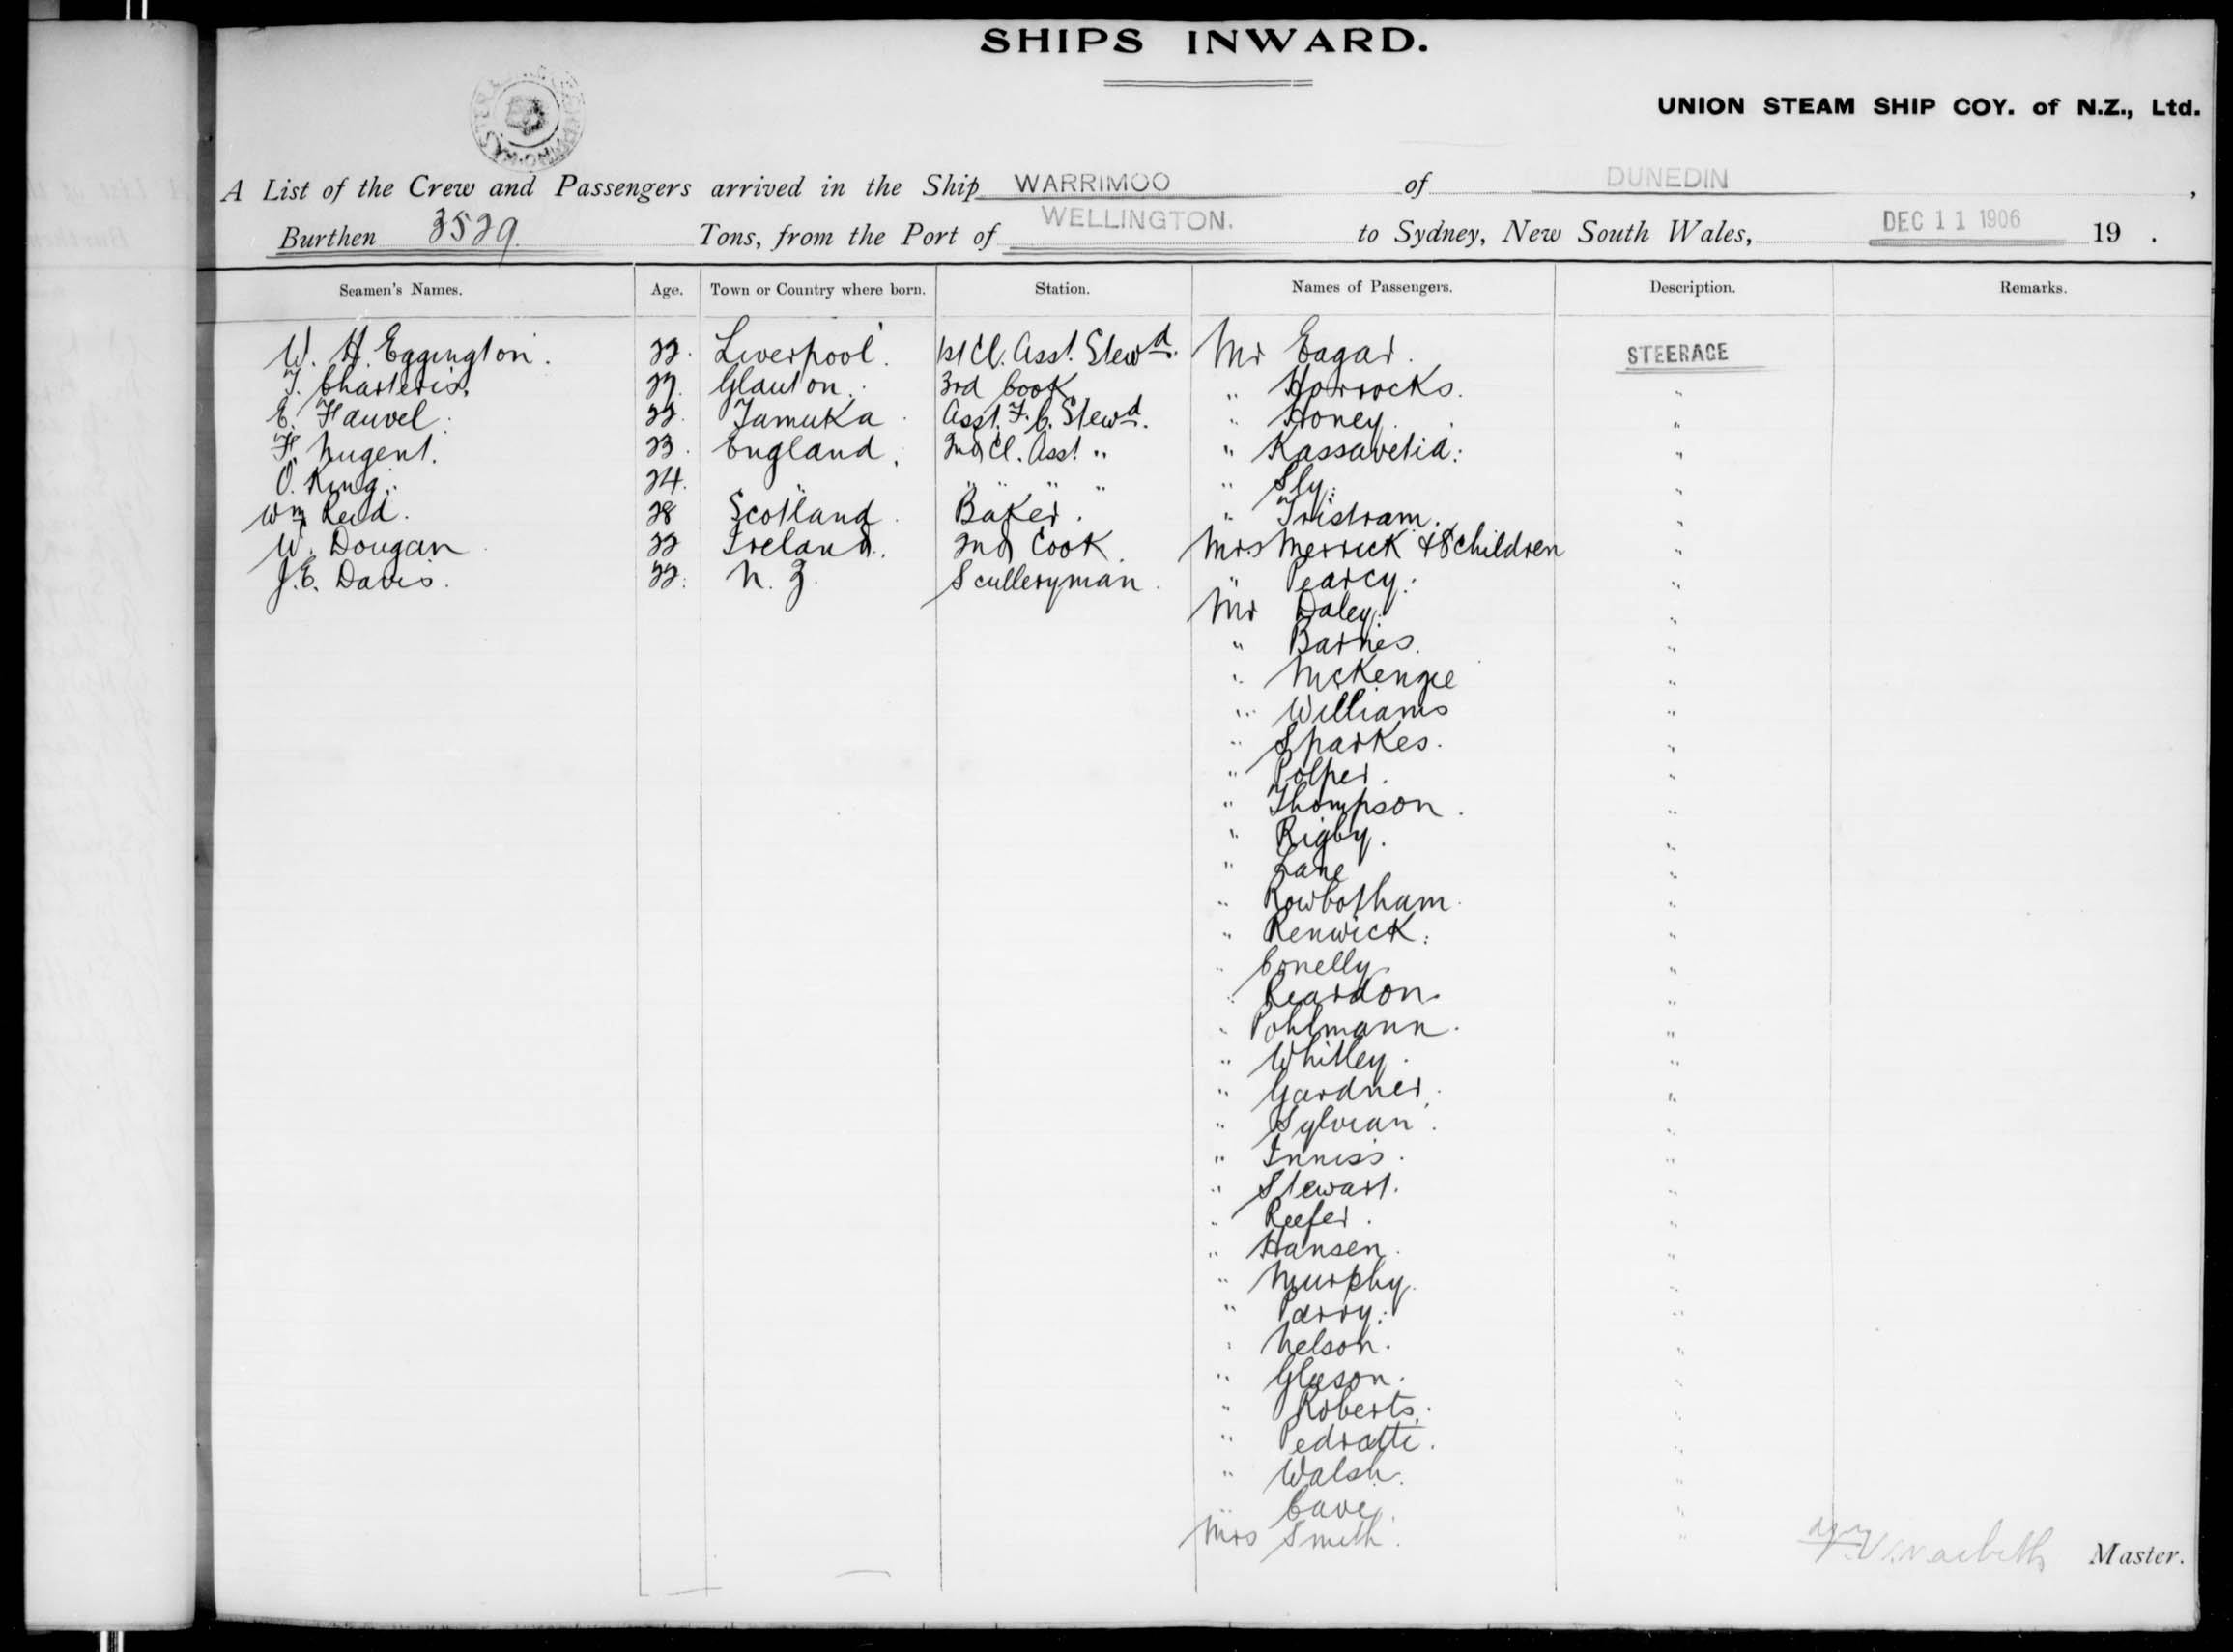 SHIPS INWARD.
UNION STEAM SHIP COY. of N.Z., Ltd.
A List of the Crew and Passengers arrived in the Ship WARRIMOO of DUNEDIN,
Burthen 3529 Tons, from the Port of WELLINGTON. to Sydney, New South Wales, DEC 11 1906 19 .
Seamen's Names. Age. Town or Country where born. Station. Names of Passengers. Description. Remarks.
W. H. Eggington. 22. Liverpool. 1st Cl. Asst. Stewd. Mr Eagar. STEERAGE
T. Charteris. 27. Glauton. 3rd Cook " Horrocks. "
E. Fauvel. 22. Tamuka. Asst. F. C. Stewd. " Honey. "
F. Nugent. 23. England. 2nd Cl. Asst. " " Kassavetia: "
O. King. 24. " " " " " Sly: "
Wm Reid. 28 Scotland. Baker. " Tristram. "
W. Dougan 22 Ireland. 2nd Cook. Mrs Merrick & 8 children "
J. E. Davis. 22. N. Z. Sculleryman. " Pearcy: "
Mr Daley: "
" Barnes. "
" McKenzie "
" Williams "
" Sparkes. "
" Polper. "
" Thompson. "
" Rigby. "
" Lane "
" Rowbotham. "
" Renwick: "
" Conelly "
" Reardon. "
" Pohlmann. "
" Whitley. "
" Gardner. "
" Sylvian. "
" Inniss. "
" Stewart. "
" Reefer. "
" Hansen. "
" Murphy. "
" Parry: "
" Nelson. "
" Gleeson. "
" Roberts. "
" Pedratti. "
" Walsh. "
" Cave. "
Mrs Smith. "
Master.